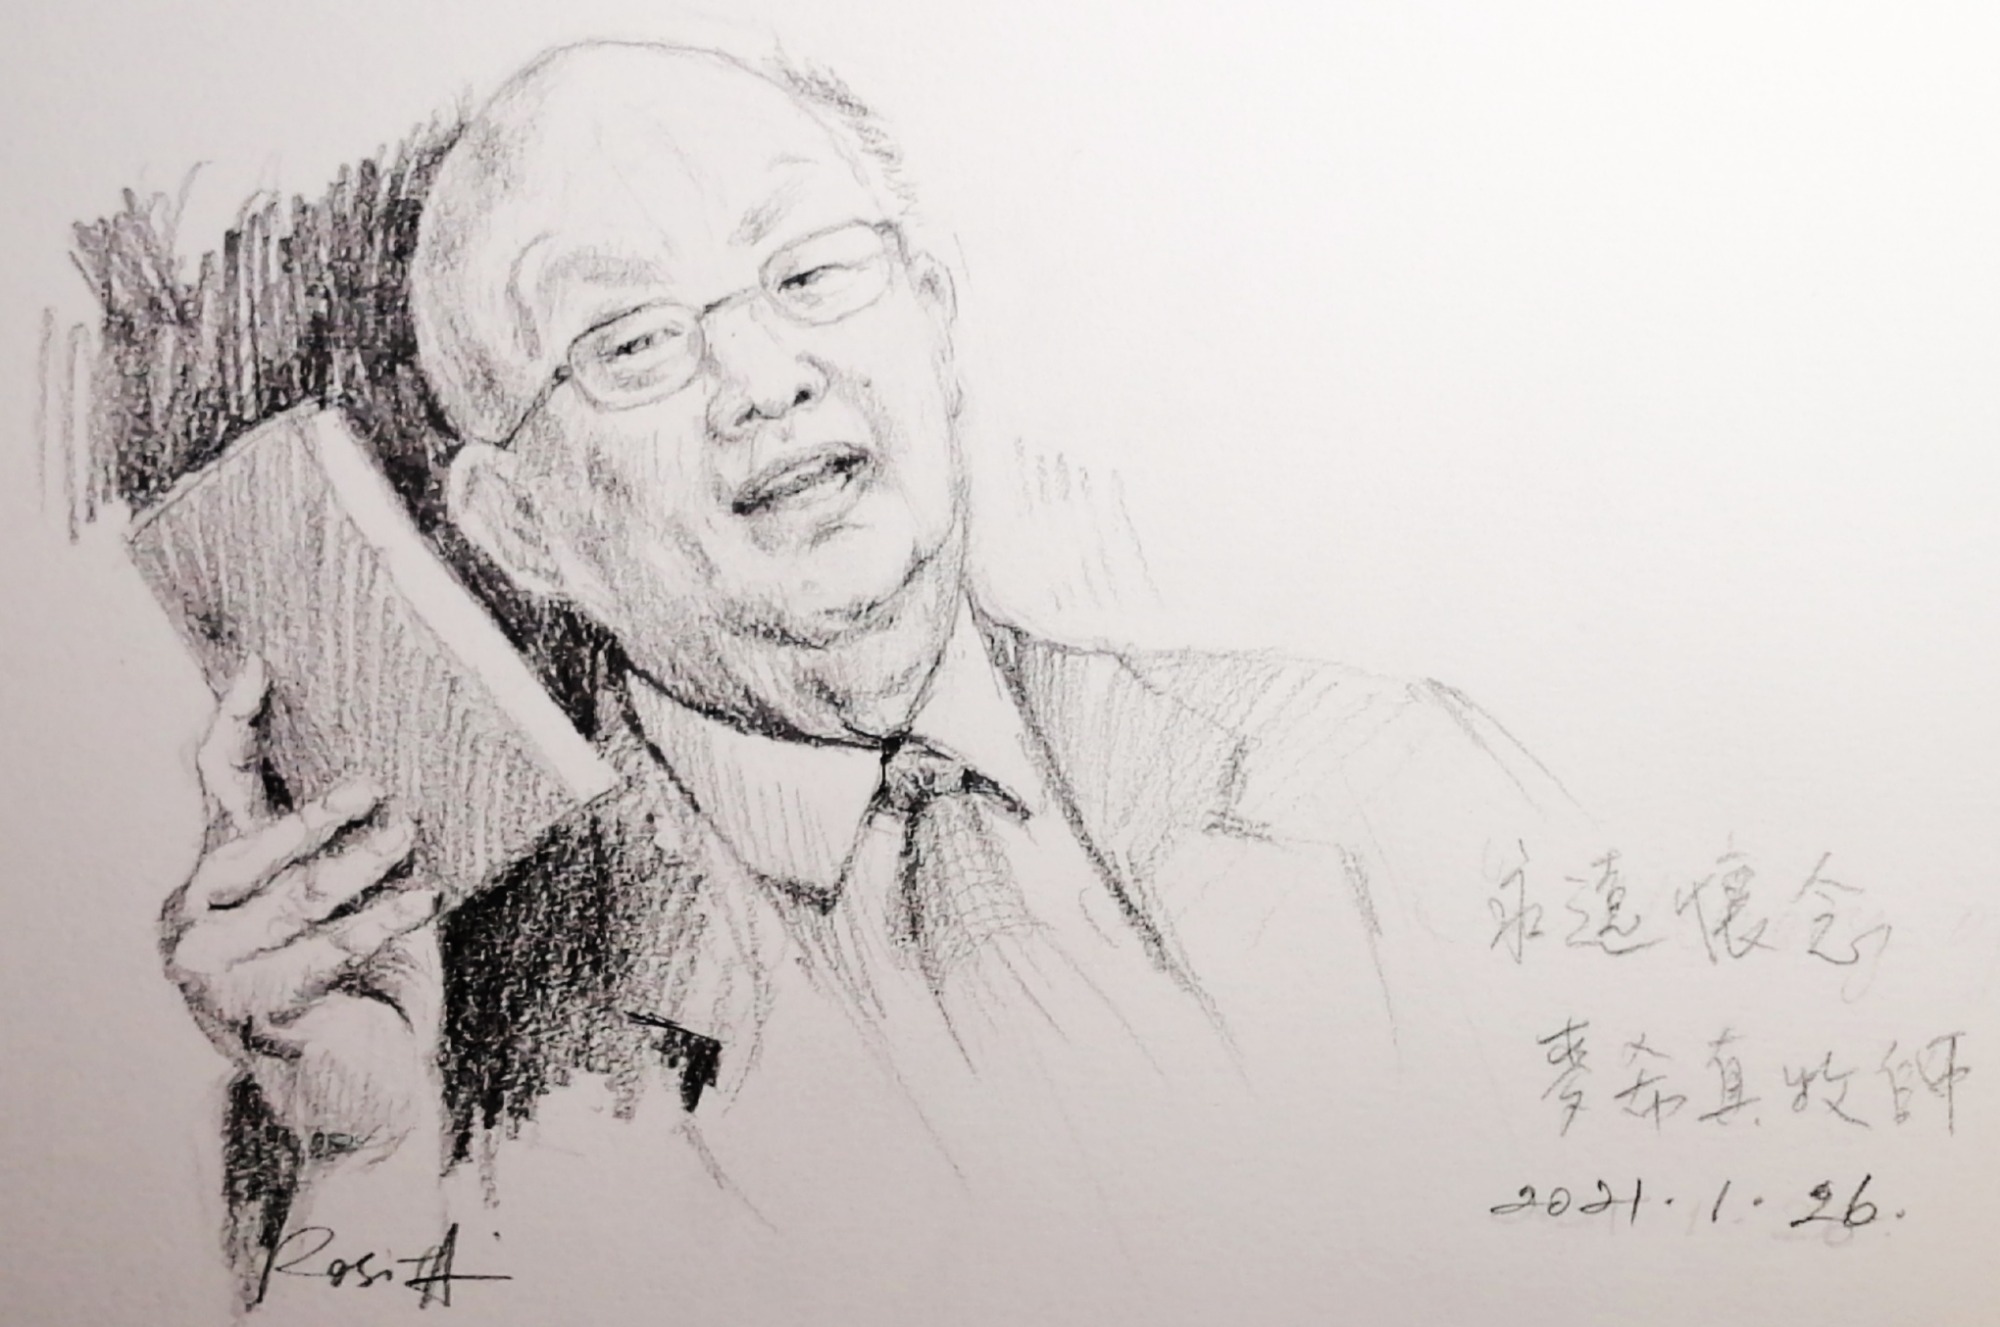 永遠懷念
麥希真牧師
2021.1.26.